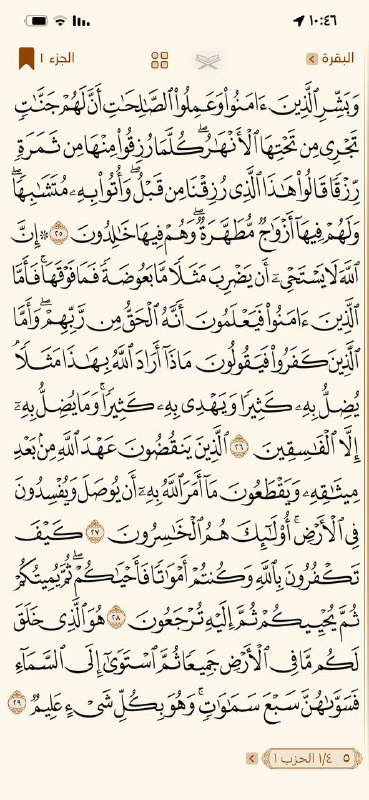 ١٠:٤٦
البقرة
الجزء ١
وَبَشِّرِ ٱلَّذِينَ ءَامَنُوا۟ وَعَمِلُوا۟ ٱلصَّٰلِحَٰتِ أَنَّ لَهُمْ جَنَّٰتٍ
تَجْرِى مِن تَحْتِهَا ٱلْأَنْهَٰرُ ۖ كُلَّمَا رُزِقُوا۟ مِنْهَا مِن ثَمَرَةٍ
رِّزْقًا قَالُوا۟ هَٰذَا ٱلَّذِى رُزِقْنَا مِن قَبْلُ ۖ وَأُتُوا۟ بِهِۦ مُتَشَٰبِهًا ۖ
وَلَهُمْ فِيهَآ أَزْوَٰجٌ مُّطَهَّرَةٌ ۖ وَهُمْ فِيهَا خَٰلِدُونَ ٢٥ ۞ إِنَّ
ٱللَّهَ لَا يَسْتَحْىِۦٓ أَن يَضْرِبَ مَثَلًا مَّا بَعُوضَةً فَمَا فَوْقَهَا ۚ فَأَمَّا
ٱلَّذِينَ ءَامَنُوا۟ فَيَعْلَمُونَ أَنَّهُ ٱلْحَقُّ مِن رَّبِّهِمْ ۖ وَأَمَّا
ٱلَّذِينَ كَفَرُوا۟ فَيَقُولُونَ مَاذَآ أَرَادَ ٱللَّهُ بِهَٰذَا مَثَلًا ۘ
يُضِلُّ بِهِۦ كَثِيرًا وَيَهْدِى بِهِۦ كَثِيرًا ۚ وَمَا يُضِلُّ بِهِۦٓ
إِلَّا ٱلْفَٰسِقِينَ ٢٦ ٱلَّذِينَ يَنقُضُونَ عَهْدَ ٱللَّهِ مِنۢ بَعْدِ
مِيثَٰقِهِۦ وَيَقْطَعُونَ مَآ أَمَرَ ٱللَّهُ بِهِۦٓ أَن يُوصَلَ وَيُفْسِدُونَ
فِى ٱلْأَرْضِ ۚ أُو۟لَٰٓئِكَ هُمُ ٱلْخَٰسِرُونَ ٢٧ كَيْفَ
تَكْفُرُونَ بِٱللَّهِ وَكُنتُمْ أَمْوَٰتًا فَأَحْيَٰكُمْ ۖ ثُمَّ يُمِيتُكُمْ
ثُمَّ يُحْيِيكُمْ ثُمَّ إِلَيْهِ تُرْجَعُونَ ٢٨ هُوَ ٱلَّذِى خَلَقَ
لَكُم مَّا فِى ٱلْأَرْضِ جَمِيعًا ثُمَّ ٱسْتَوَىٰٓ إِلَى ٱلسَّمَآءِ
فَسَوَّىٰهُنَّ سَبْعَ سَمَٰوَٰتٍ ۚ وَهُوَ بِكُلِّ شَىْءٍ عَلِيمٌ ٢٩
٥ ١/٤ الحزب ١